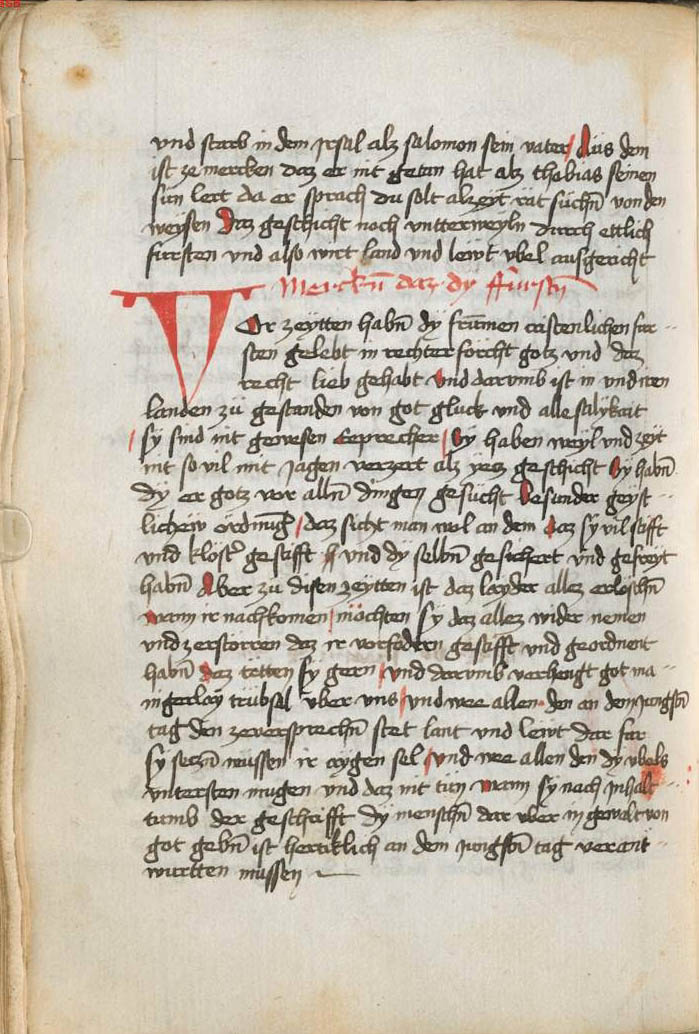 vnd starb in dem jrsal alz salomon sein vater / Aus dem
ist ze mercken daz er nit getan hat alz thabias seinen
sun lert da er sprach du solt alzeyt rat suchñ von den
weysen Daz geschicht noch vntterweyln durch ettlich
fursten vnd also wirt land vnd lewt vbel ausgericht
Merckñ daz dy ffurstñ
Vor zeytten habñ dy frumen cristenlichen fur
sten gelebt in rechter forcht gotz vnd daz
recht lieb gehabt Vnd darvmb ist in vnd iren
landen zu gestanden von got gluck vnd alle sälykait
/ sy sind nit gewesen Eeprecher / Sy haben weyl vnd zeyt
nit so vil mit Jagen verzert alz yetz geschicht Sy habñ
dy er gotz vor allñ dingen gesucht Besunder geyst
lichew ordnung / daz sicht man wol an dem Daz sy vil stifft
vnd klost' gestifft vnd dy selbñ gesichert vnd gefreyt
habñ Aber zu disen zeytten ist daz layder allez erloschñ
wann ir nachkomen / möchten sy daz allez wider nemen
vnd zerstorren daz ir vorfodern gestifft vnd geordnent
habñ daz tetten sy gern / vnd darvmb verhengt got ma
nigerlay trubsal vber vns / vnd wee allen den an dem jungstñ
tag den zeversprechñ stet lant vnd lewt dar fur
sy seczñ mussen ir aygen sel / vnd wee allen den dy vbels
vntersten mugen vnd daz nit tun wann sy nach jnhalt
tumb der geschrifft dy menschñ dar vber in gewalt von
got gebñ ist hertiklich an dem jungstñ tag verant
wurtten mussen